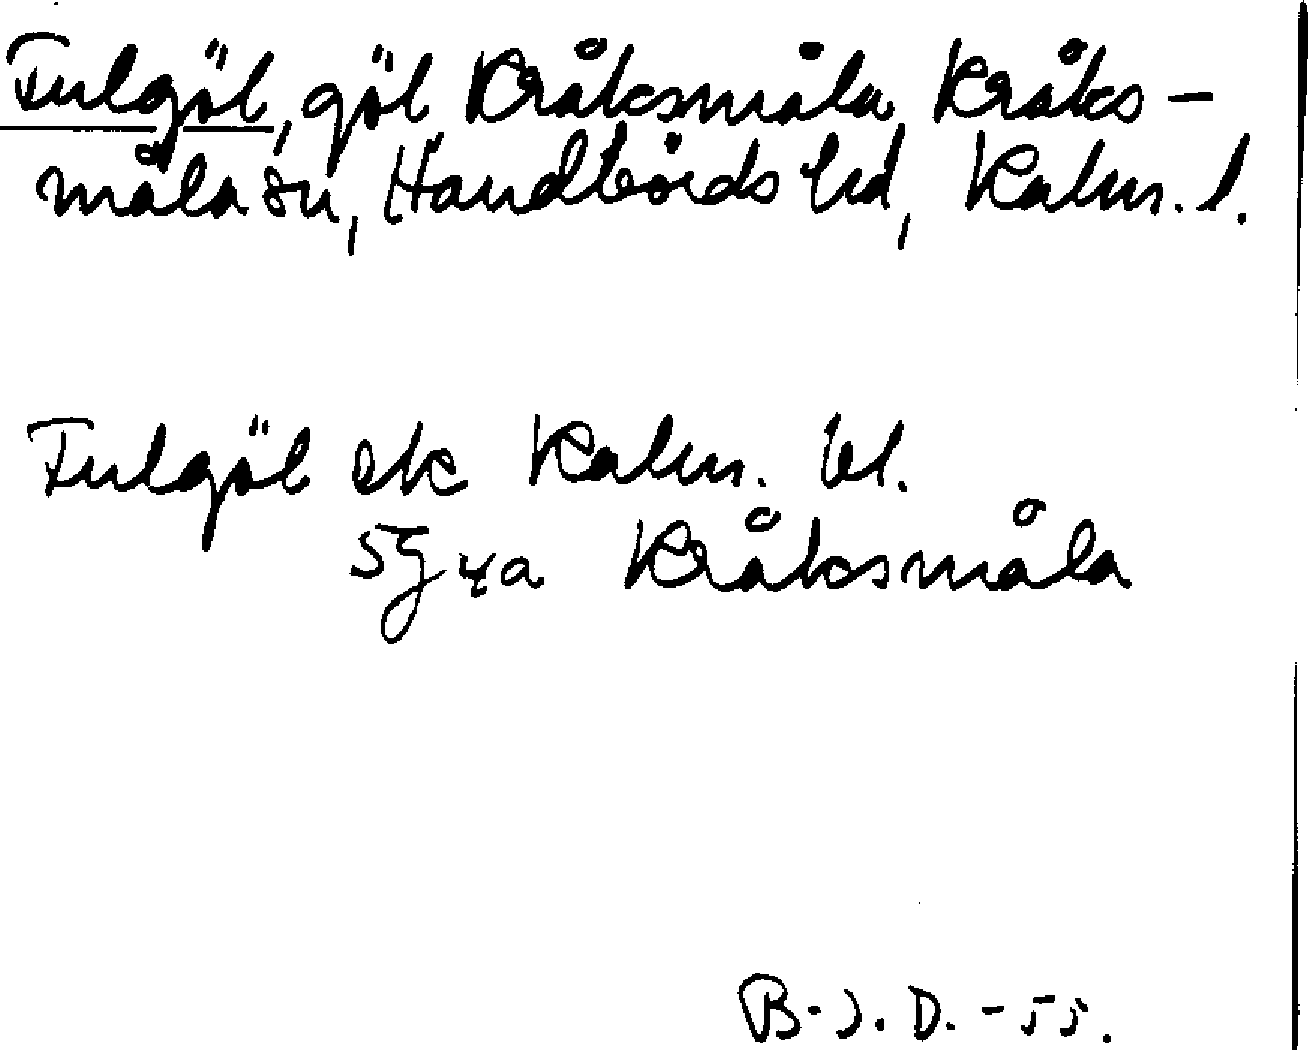 Fulgöl, göl Kråksmåla, Kråks-
måla sn, Handbörds hd, Kalm. l.
Fulgöl ek Kalm. bl.
5G4a Kråksmåla
B-J. D. -55.